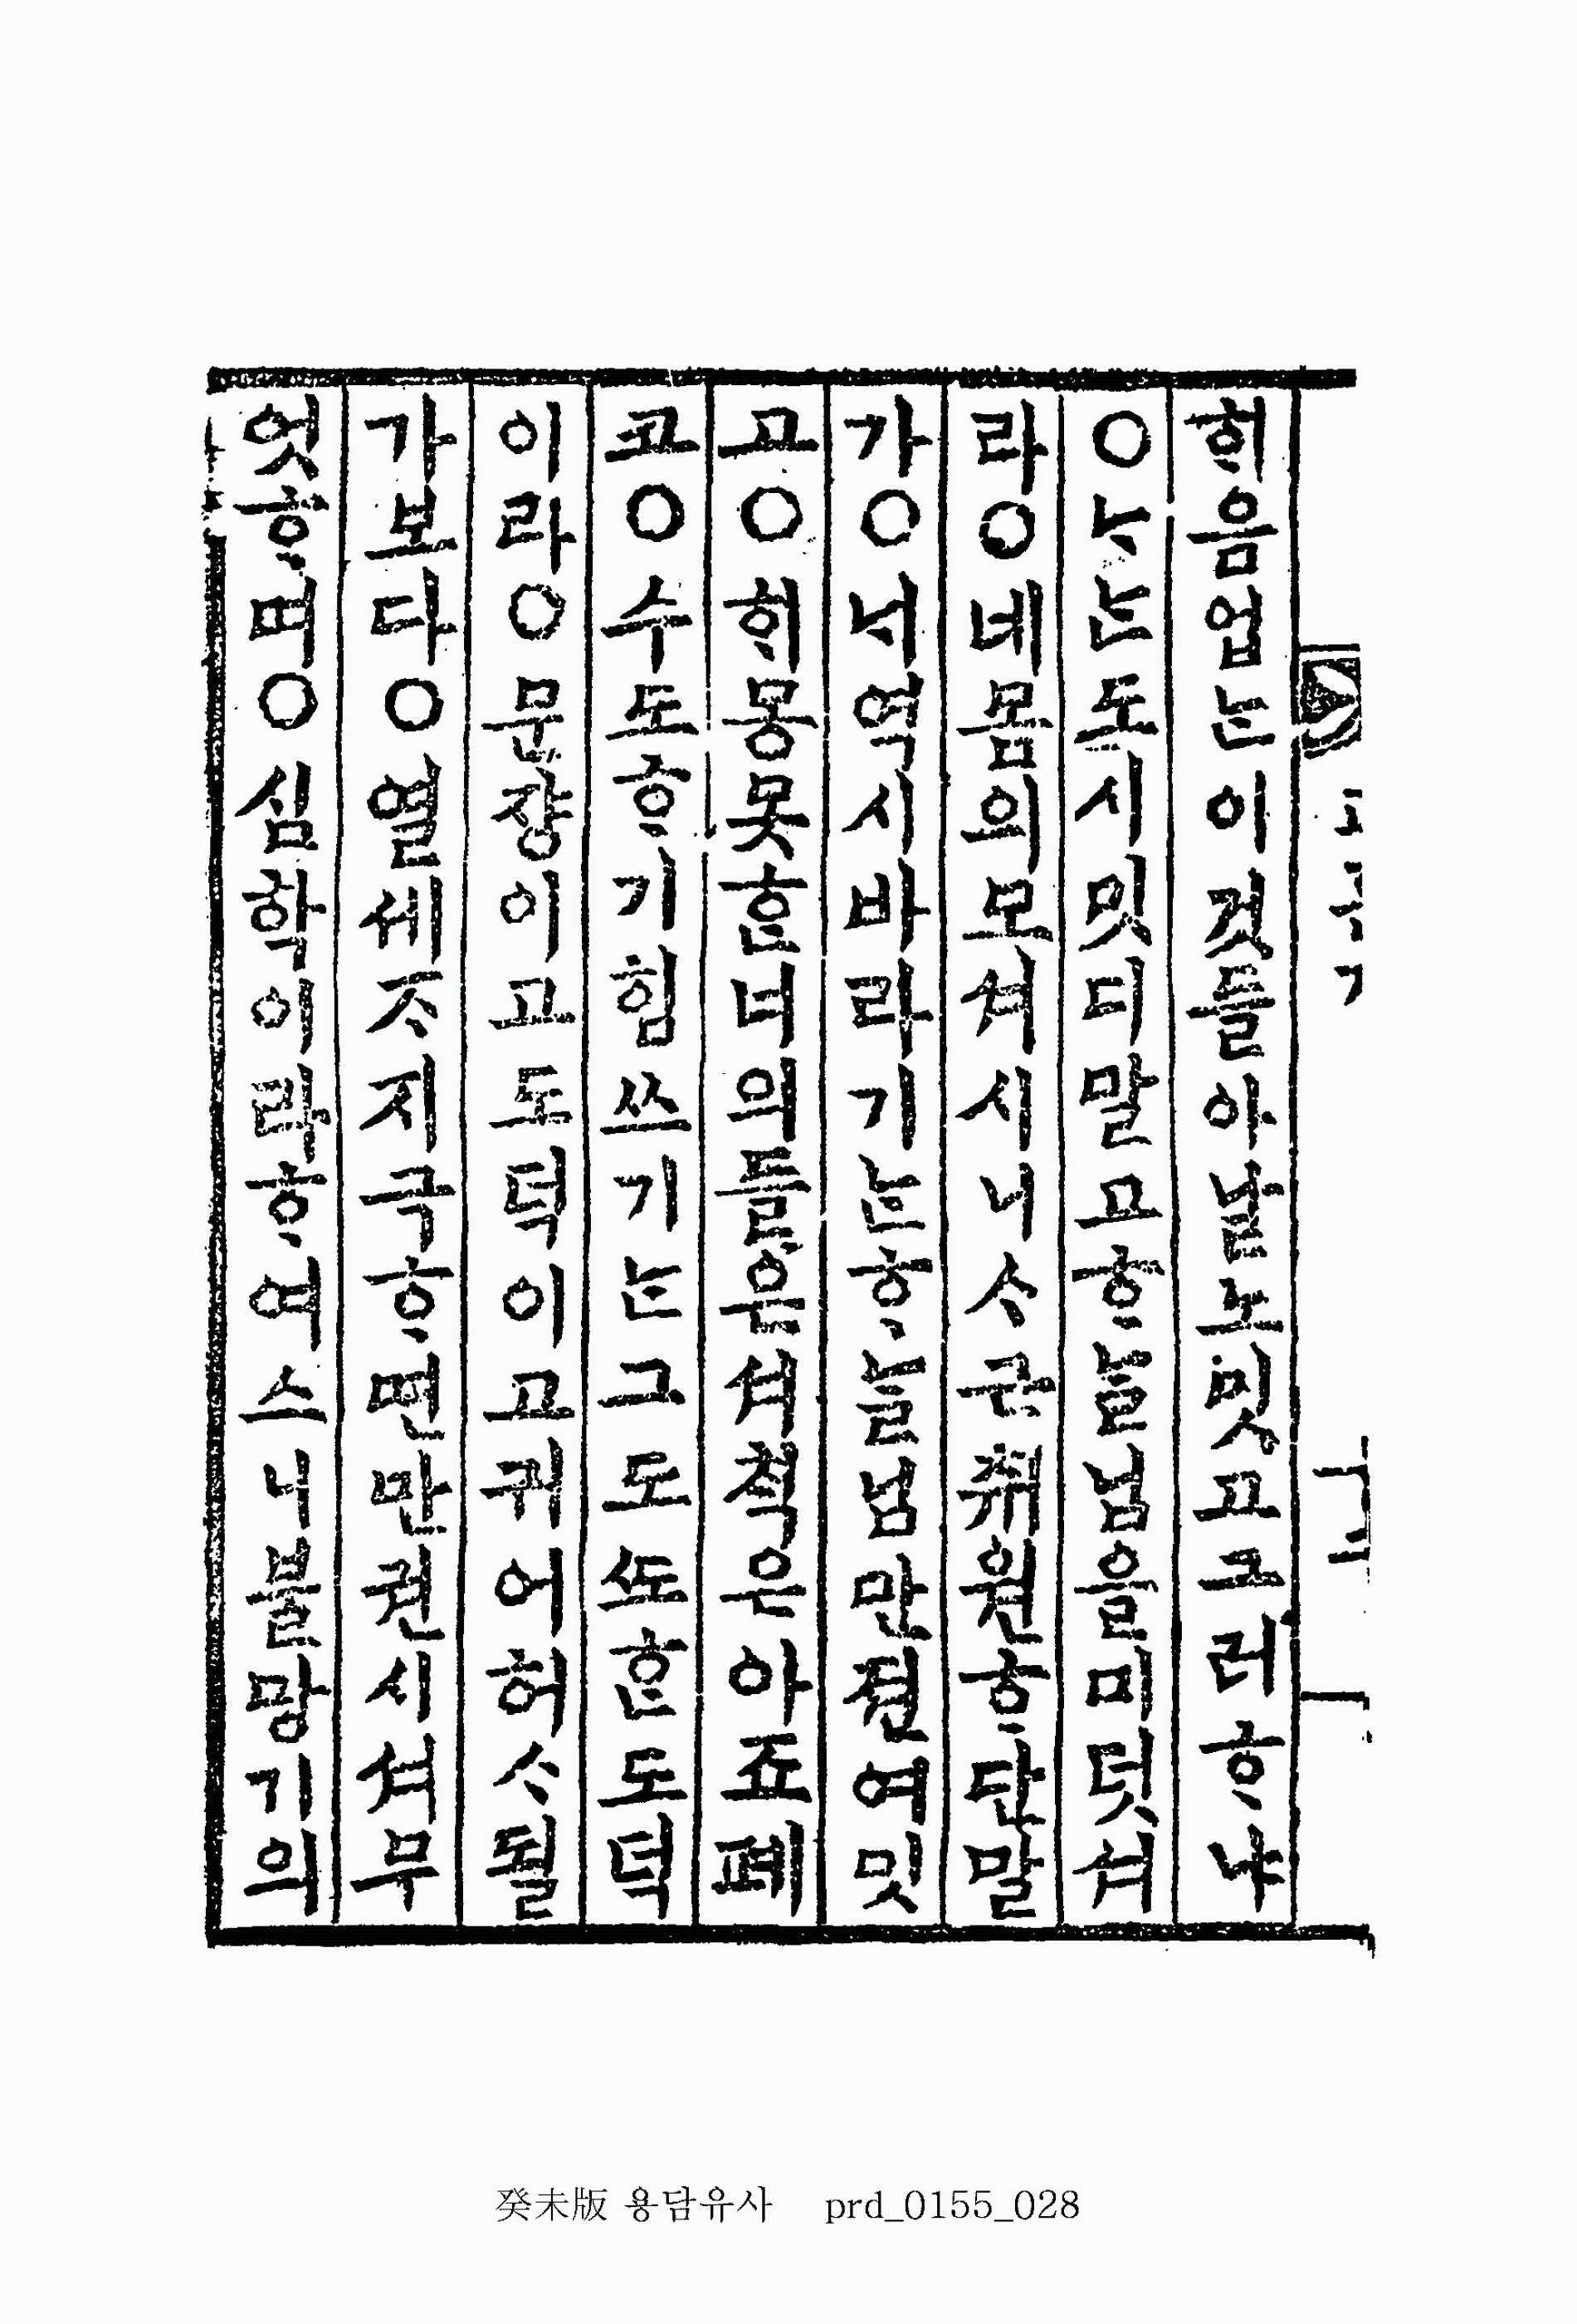 ᄒᆡ음업는이것들아날노밋고그러ᄒᆞ냐
○ᄂᆞᄂᆞᆫ도시밋디말고ᄒᆞᄂᆞᆯ님을미덧셔
라○네몸의모셔시니ᄉᆞ근취원ᄒᆞ단말
가○ᄂᆡ역시바라기ᄂᆞᆫᄒᆞᄂᆞᆯ님만젼여밋
고○ᄒᆡ몽못ᄒᆞᆫ너의들은셔ᄎᆡᆨ은아죠폐
코○수도ᄒᆞ기힘쓰기ᄂᆞᆫ그도ᄯᅩᄒᆞᆫ도덕
이라○문쟝이고도덕이고귀어허ᄉᆞ될
가보다○열세ᄌᆞ지극ᄒᆞ면만권시셔무
엇ᄒᆞ며○심학이라ᄒᆞ여스니불망기의
癸未版 용담유사 prd_0155_028